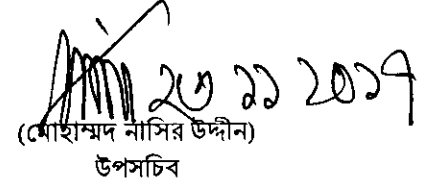 ২৩ ১১ ২০১৭
(মোহাম্মদ নাসির উদ্দীন)
উপসচিব